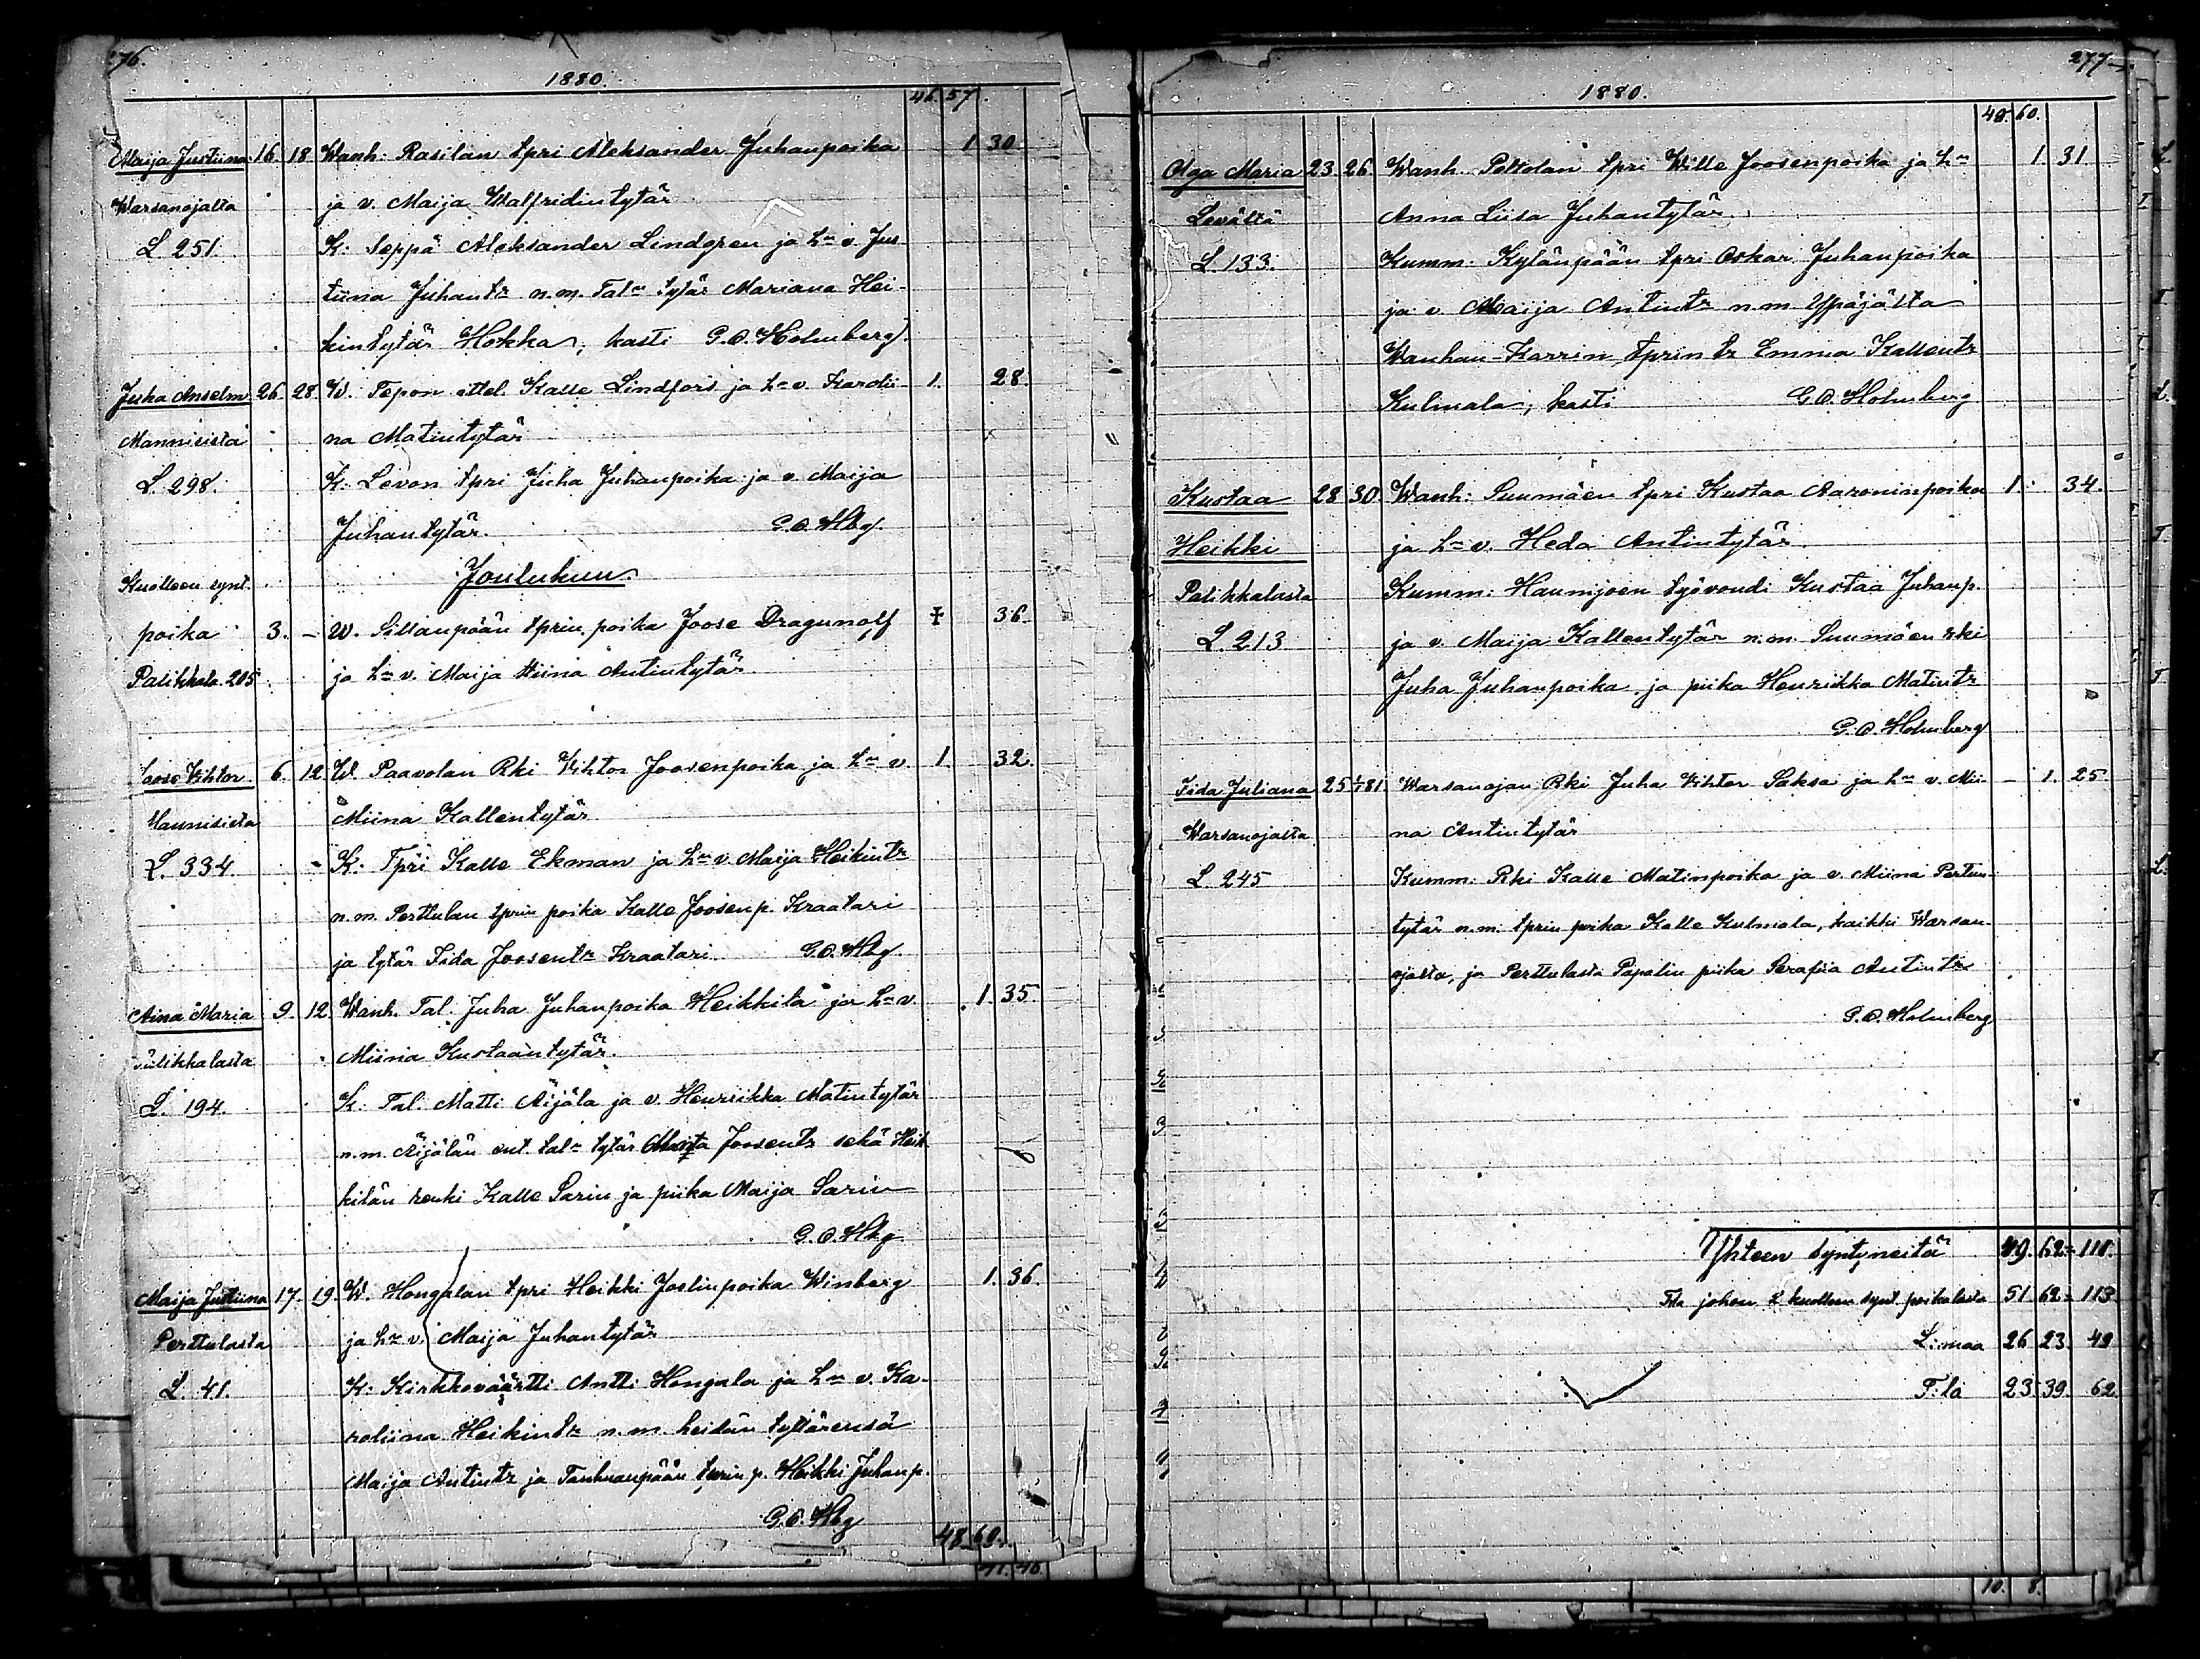 276.
1880.
46. 57.
Maija Justiina 16 18 Wanh: Rasilan tpri Aleksander Juhanpoika 1 30
Warsanojalta ja v. Maija Walfridintytär
L. 251. K: Seppä Aleksander Lindgren ja h:n v. Jus-
tiina Juhantr n.m. Tal:n tytär Mariana Hei-
kintytär Hokka; kasti G.O. Holmberg.
Juha Anselm 26. 28. W. Tepon ittel. Kalle Lindfors ja h:n v. Karolii- 1. 28.
Mannisista na Matintytär
L. 298. K. Levon tpri Juha Juhanpoika ja v. Maija
Juhantytär. G.O. Hbg.
Joulukuu.
Kuolleen synt.
poika 3. – W. Sillanpään tprin poika Joose Dragunoff ‡ 36.
Palikkala. 205. ja h:n v. Maija Miina Antintytär.
Joose Vihtor 6. 12 W. Paavolan Rki Vihtor Joosenpoika ja h:n v. 1. 32.
Mannisista Miina Kallentytär
L. 334. K: Tpri Kalle Ekman ja h:n v. Maija Heikintr
n.m. Perttulan tprin poika Kalle Joosenp. Kraatari
ja tytär Iida Joosentr Kraatari. G.O. Hbg.
Aina Maria 9. 12. Wanh. Tal. Juha Juhanpoika Heikkilä ja h:n v. 1. 35.
Palikkalasta Miina Kustaantytär.
L. 194. K: Tal. Matti Äijälä ja v. Henriikka Matintytär
n.m. Äijälän ent. tal:n tytär Joosentr sekä Heik-
kilän renki Kalle Sarin ja piika Maija Sarin
G.O. Hbg
Maija Justiina 17. 19. W. Hongalan tpri Heikki Joelinpoika Winberg 1. 36.
Perttulasta ja h:n v. Maija Juhantytär
L. 41. K: Kirkkoväärtti Antti Hongala ja h:n v. Ka-
roliina Heikintr n.m. heidän tyttärensä
Maija Antintr ja Tanhuanpään tprin p. Heikki Juhanp.
G.O. Hbg
48 60.
277
1880.
48. 60.
Olga Maria 23. 26. Wanh. Peltolan tpri Wille Joosenpoika ja h:n 1. 31
Levältä Anna Liisa Juhantytär.
L. 133. Kumm: Kylänpään tpri Oskar Juhanpoika
ja v. Maija Antintr n.m. Ypäjältä
Wanhan-Karrin tprin tr Emma Kallentr
Kulmala; kasti G.O. Holmberg
Kustaa 28 30 Wanh: Suumäen tpri Kustaa Aaroninpoika 1. 34.
Heikki ja h:n v. Heda Antintytär.
Palikkalasta Kumm: Haunijoen työvoudi Kustaa Juhanp.
L. 213 ja v. Maija Kallentytär n.m. Suumäen rki
Juha Juhanpoika ja piika Henriikka Matintr
G.O. Holmberg
Iida Juliana 25 1/1 81. Warsanojan Rki Juha Vihtor Saksa ja h:n v. Mii- – 1. 25.
Warsanojasta na Antintytär
L. 245 Kumm: Rki Kalle Matinpoika ja v. Miina Pertun-
tytär n.m. tprin poika Kalle Kulmala, kaikki Warsan-
ojasta, ja Perttulasta Papalin piika Serafiia Antintr
G.O. Holmberg
Yhteen syntyneitä 49. 62 = 111.
johon 2 kuolleen synt. poikalasta 51 62 = 113
L:maa 26 23. 49
T:lä 23 39. 62.
10. 8.